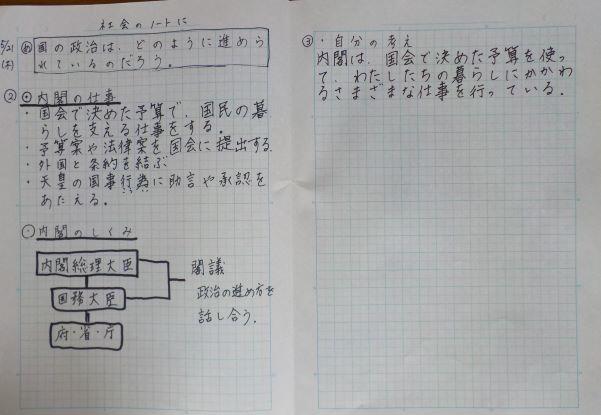 社会のノートに
5/21
(木)
め 国の政治は、どのように進めら
れているのだろう。
② ・内閣の仕事
・国会で決めた予算で、国民の暮
らしを支える仕事をする。
・予算案や法律案を国会に提出する
・外国と条約を結ぶ
・天皇の国事行為に助言や承認を
あたえる。
・内閣のしくみ
内閣総理大臣
国務大臣
府・省・庁
閣議
政治の進め方を
話し合う。
③・自分の考え
内閣は、国会で決めた予算を使っ
て、わたしたちの暮らしにかかわ
るさまざまな仕事を行っている。